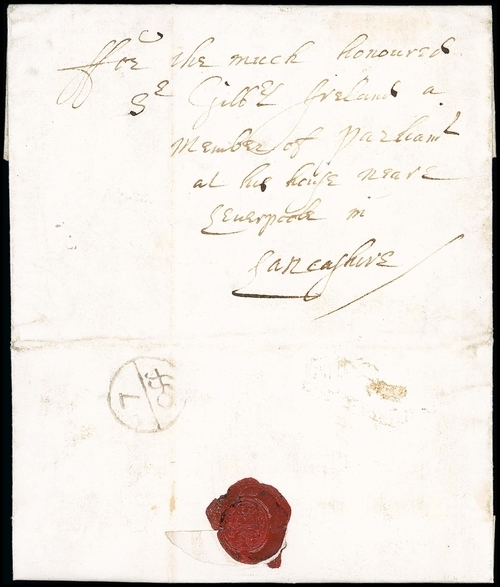 ffor the much honoured
Sr Gilbt Ireland a
Member of Parliamt
at his house neare
Leverpoole in
Lancashire